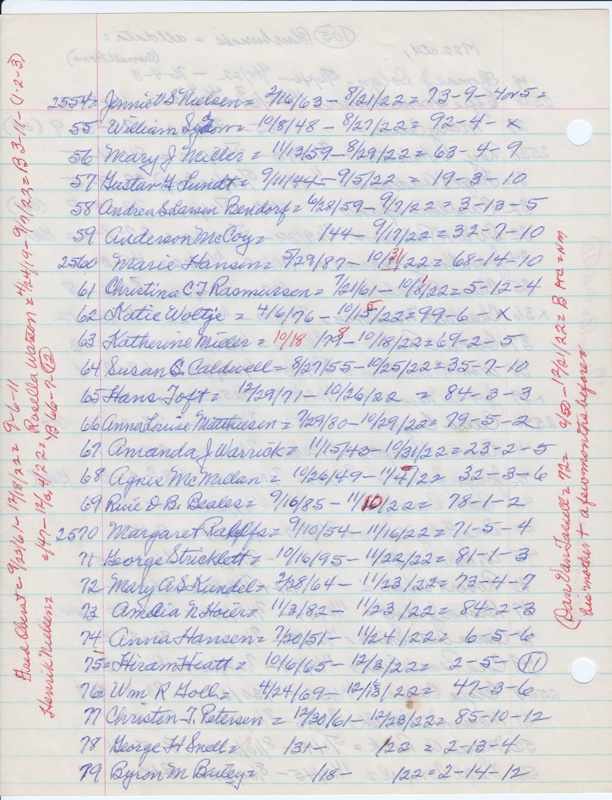 2554= Jennie V. S. Nielsen = 2/16/63 - 8/21/22 = 73-9-4 or 5 =
55 William = 10/8/48 - 8/27/22 = 92-4-x
56 Mary J Miller = 11/13/59 - 8/29/22 = 63-4-9
57 Gustav F. Lundt = 9/11/44 - 9/5/22 = 19-3-10
58 Andrea S Larsen Bendorf = 6/28/59 - 9/7/22 = 3-13-5
59 Anderson McCoy = 144 - 9/17/22 = 32-7-10
2560 Marie Hansen = 5/29/87 - 10/ /22 = 68-14-10
61 Christina C. J Rasmussen = 7/21/61 - 10/8/22 = 5-12-4
62 Katie Woltje = 4/6/76 - 10/15/22 = 99-6-x
63 Katherine Mider = 10/18 / - 10/18/22 = 69-2-5
64 Susan C. Caldwell = 8/27/55 - 10/25/22 = 35-7-10
65 Hans Toft = 12/29/71 - 10/26/22 = 84-3-3
66 Anna Louise Matthiesen = 7/29/80 - 10/29/22 = 79-5-2
67 Amanda J Warrick = 11/15/43 - 10/31/22 = 23-2-5
68 Agnes McMillan = 10/26/49 - 11/4/22 32-3-6
69 D. B. Beales = 9/16/85 - 11/10/22 = 78-1-2
2570 Margaret Ralffs = 9/10/54 - 11/16/22 = 71-5-4
71 George Stricklett = 10/16/95 - 11/22/22 = 81-1-3
72 Mary A S Kundel = 2/28/64 - 11/23/22 = 73-4-7
73 Amelia N Hoier = 11/3/82 - 11/23/22 = 84-2-3
74 Anna Hansen = 7/20/51 - 11/24/22 = 6-5-6
75 = Hiram Hiatt = 10/6/65 - 12/3/22 = 2-5-11
76 = Wm R Goll = 4/24/69 - 12/13/22 = 47-3-6
77 Christen T. Petersen = 12/30/61 - 12/23/22 = 85-10-12
78 George H Snell = 131 - /22 = 2-13-4
79 Byron M Bailey = /18 - /22 = 2-14-12
Fred = 9/23/61 - 12/18/22 = 9-6-11
Henrik Nielsen = 2/47 - 12/2,4/22 = B 66-7-12
Rosella Watson = 4/24/19 - 9/7/22 = B 3-11-(1-2-3)
(Dan Van Tassell = 72 = 2/50 - 12/21/22 = B
his mother + a few months before =